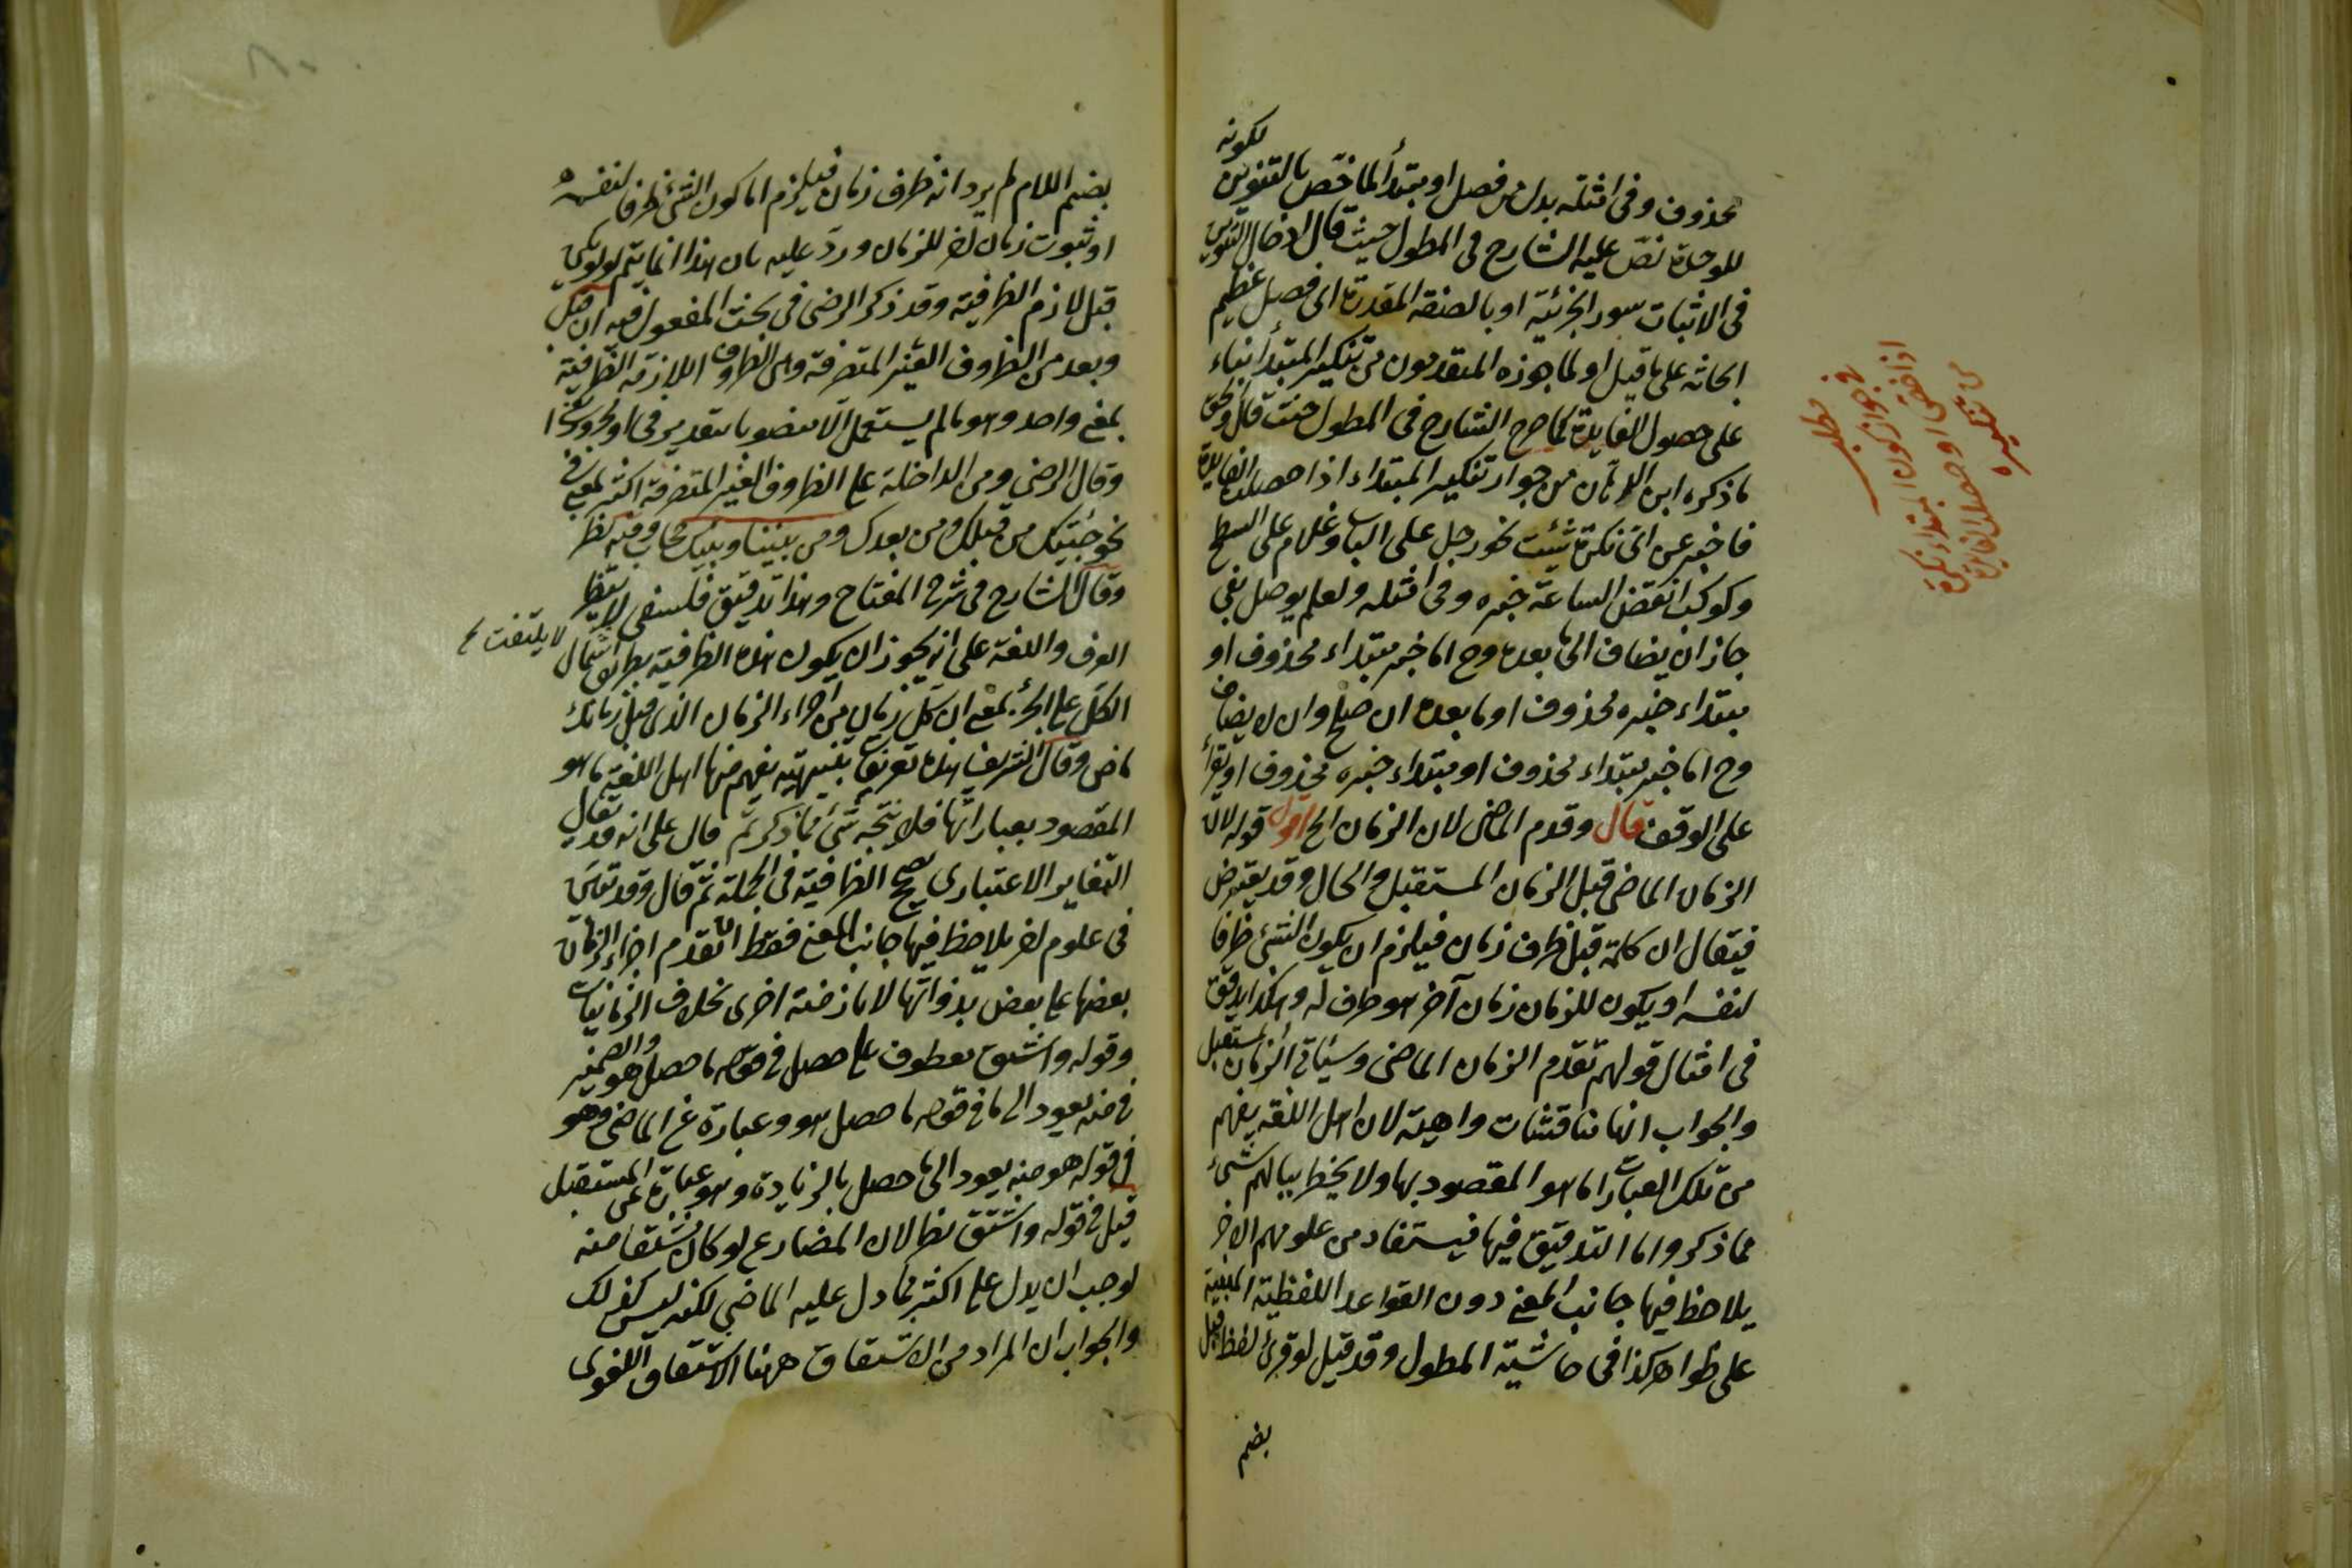 لكونه
محذوف وفى امثلته بدل من فصل او مبتدأ لما خص بالتنوين
للوحدة نص عليه الشارح فى المطول حيث قال ادخال التنوين
فى الاثبات سور الجزئية او بالصفة المقدرة اى فصل عظيم
على ما قيل او لما جوزه المتقدمون من تنكير المبتدأ بناء
على حصول الفايدة كما صرح الشارح فى المطول حيث قال والحق
ما ذكره ابن الدهان من جواز تنكير المبتداء اذا حصلت الفايدة
فاخبر عن اى نكرة شئت نحو رجل على الباب وغلام على السطح
وكوكب انقض الساعة خبره وفى امثله ولعلم يوصل بفى
جاز ان يضاف الى ما بعده وح اما خبر مبتداء محذوف او
مبتداء خبره محذوف او ما بعده ان صلح وان لا يضاف
وح اما خبر مبتداء محذوف او مبتداء خبره محذوف او يقرأ
على الوقف قال وقدم الماضى لان الزمان الخ اقول قوله لان
الزمان الماضى قبل الزمان المستقبل والحال وقد يعترض
فيقال ان كلمة قبل ظرف زمان فيلزم ان يكون الشئ ظرفا
لنفسه او يكون للزمان زمان آخر هو ظرف له وهكذا يدقق
فى امثال قولهم تقدم الزمان الماضى وسيأتى الزمان المستقبل
والجواب انها مناقشات واهية لان اهل اللغة يفهم
من تلك العبارات ما هو المقصود بها ولا يخطر ببالهم شئ
مما ذكر واما التدقيق فيها فيستفاد من علومهم الاخر
يلاحظ فيها جانب المعنى دون القواعد اللفظية المبنية
على ظواهر كذا فى حاشية المطول وقد قيل لو قرئ لفظ قبل
بضم
مطلب
فى جواز كون المبتداء نكرة
اذا خص او حصل الفايدة
من تنكيره
بضم اللام لم يرد انه ظرف زمان فيلزم اما كون الشئ ظرفا لنفسه
او ثبوت زمان اخر للزمان ورد عليه بان هذا انما يتم لو لم يكن
قبل لازم الظرفية وقد ذكر الرضى فى بحث المفعول فيه ان قبل
وبعد من الظروف الغير المتصرفة وهى الظروف اللازمة الظرفية
بمعنى واحد وهو ما لم يستعمل الا منصوبا بتقدير فى او مجرورا
وقال الرضى ومن الداخلة على الظروف الغير المتصرفة اكثر بمعنى فى
نحو جئتك من قبلك ومن بعدك ومن بيننا وبينك حجاب وفيه نظر
وقال الشارح فى شرح المفتاح وهذا تدقيق فلسفى لا
لا يلتفت
العرف واللغة على انه يجوز ان يكون هذه الظرفية بطريق اشتمال
الكل على الجزء بمعنى ان كل زمان من اجزاء الزمان الذى قبل زمانك
ماض وقال الشريف هذه تعريفات تنبيهية يفهم منها اهل اللغة ما هو
المقصود بعباراتها فلا يتجه شئ مما ذكر ثم قال على انه قد يقال
التغاير الاعتبارى يصحح الظرفية فى الجملة ثم قال وقد تقرر
فى علوم اخر يلاحظ فيها جانب المعنى فقط ان تقدم اجزاء الزمان
بعضها على بعض بذواتها لا بازمنة اخرى بخلاف الزمانيات
وقوله واشتق معطوف على حصل فى قوله ما حصل هو والضمير
فى منه يعود الى ما فى قوله ما حصل هو وعبارة عن الماضى وهو
فى قوله هو منه يعود الى ما حصل بالزيادة وهو عبارة عن المستقبل
قيل فى قوله واشتق نظر لان المضارع لو كان مشتقا منه
لوجب ان يدل على اكثر مما دل عليه الماضى لكنه ليس كذلك
والجواب ان المراد من الاشتقاق ههنا الاشتقاق اللغوى